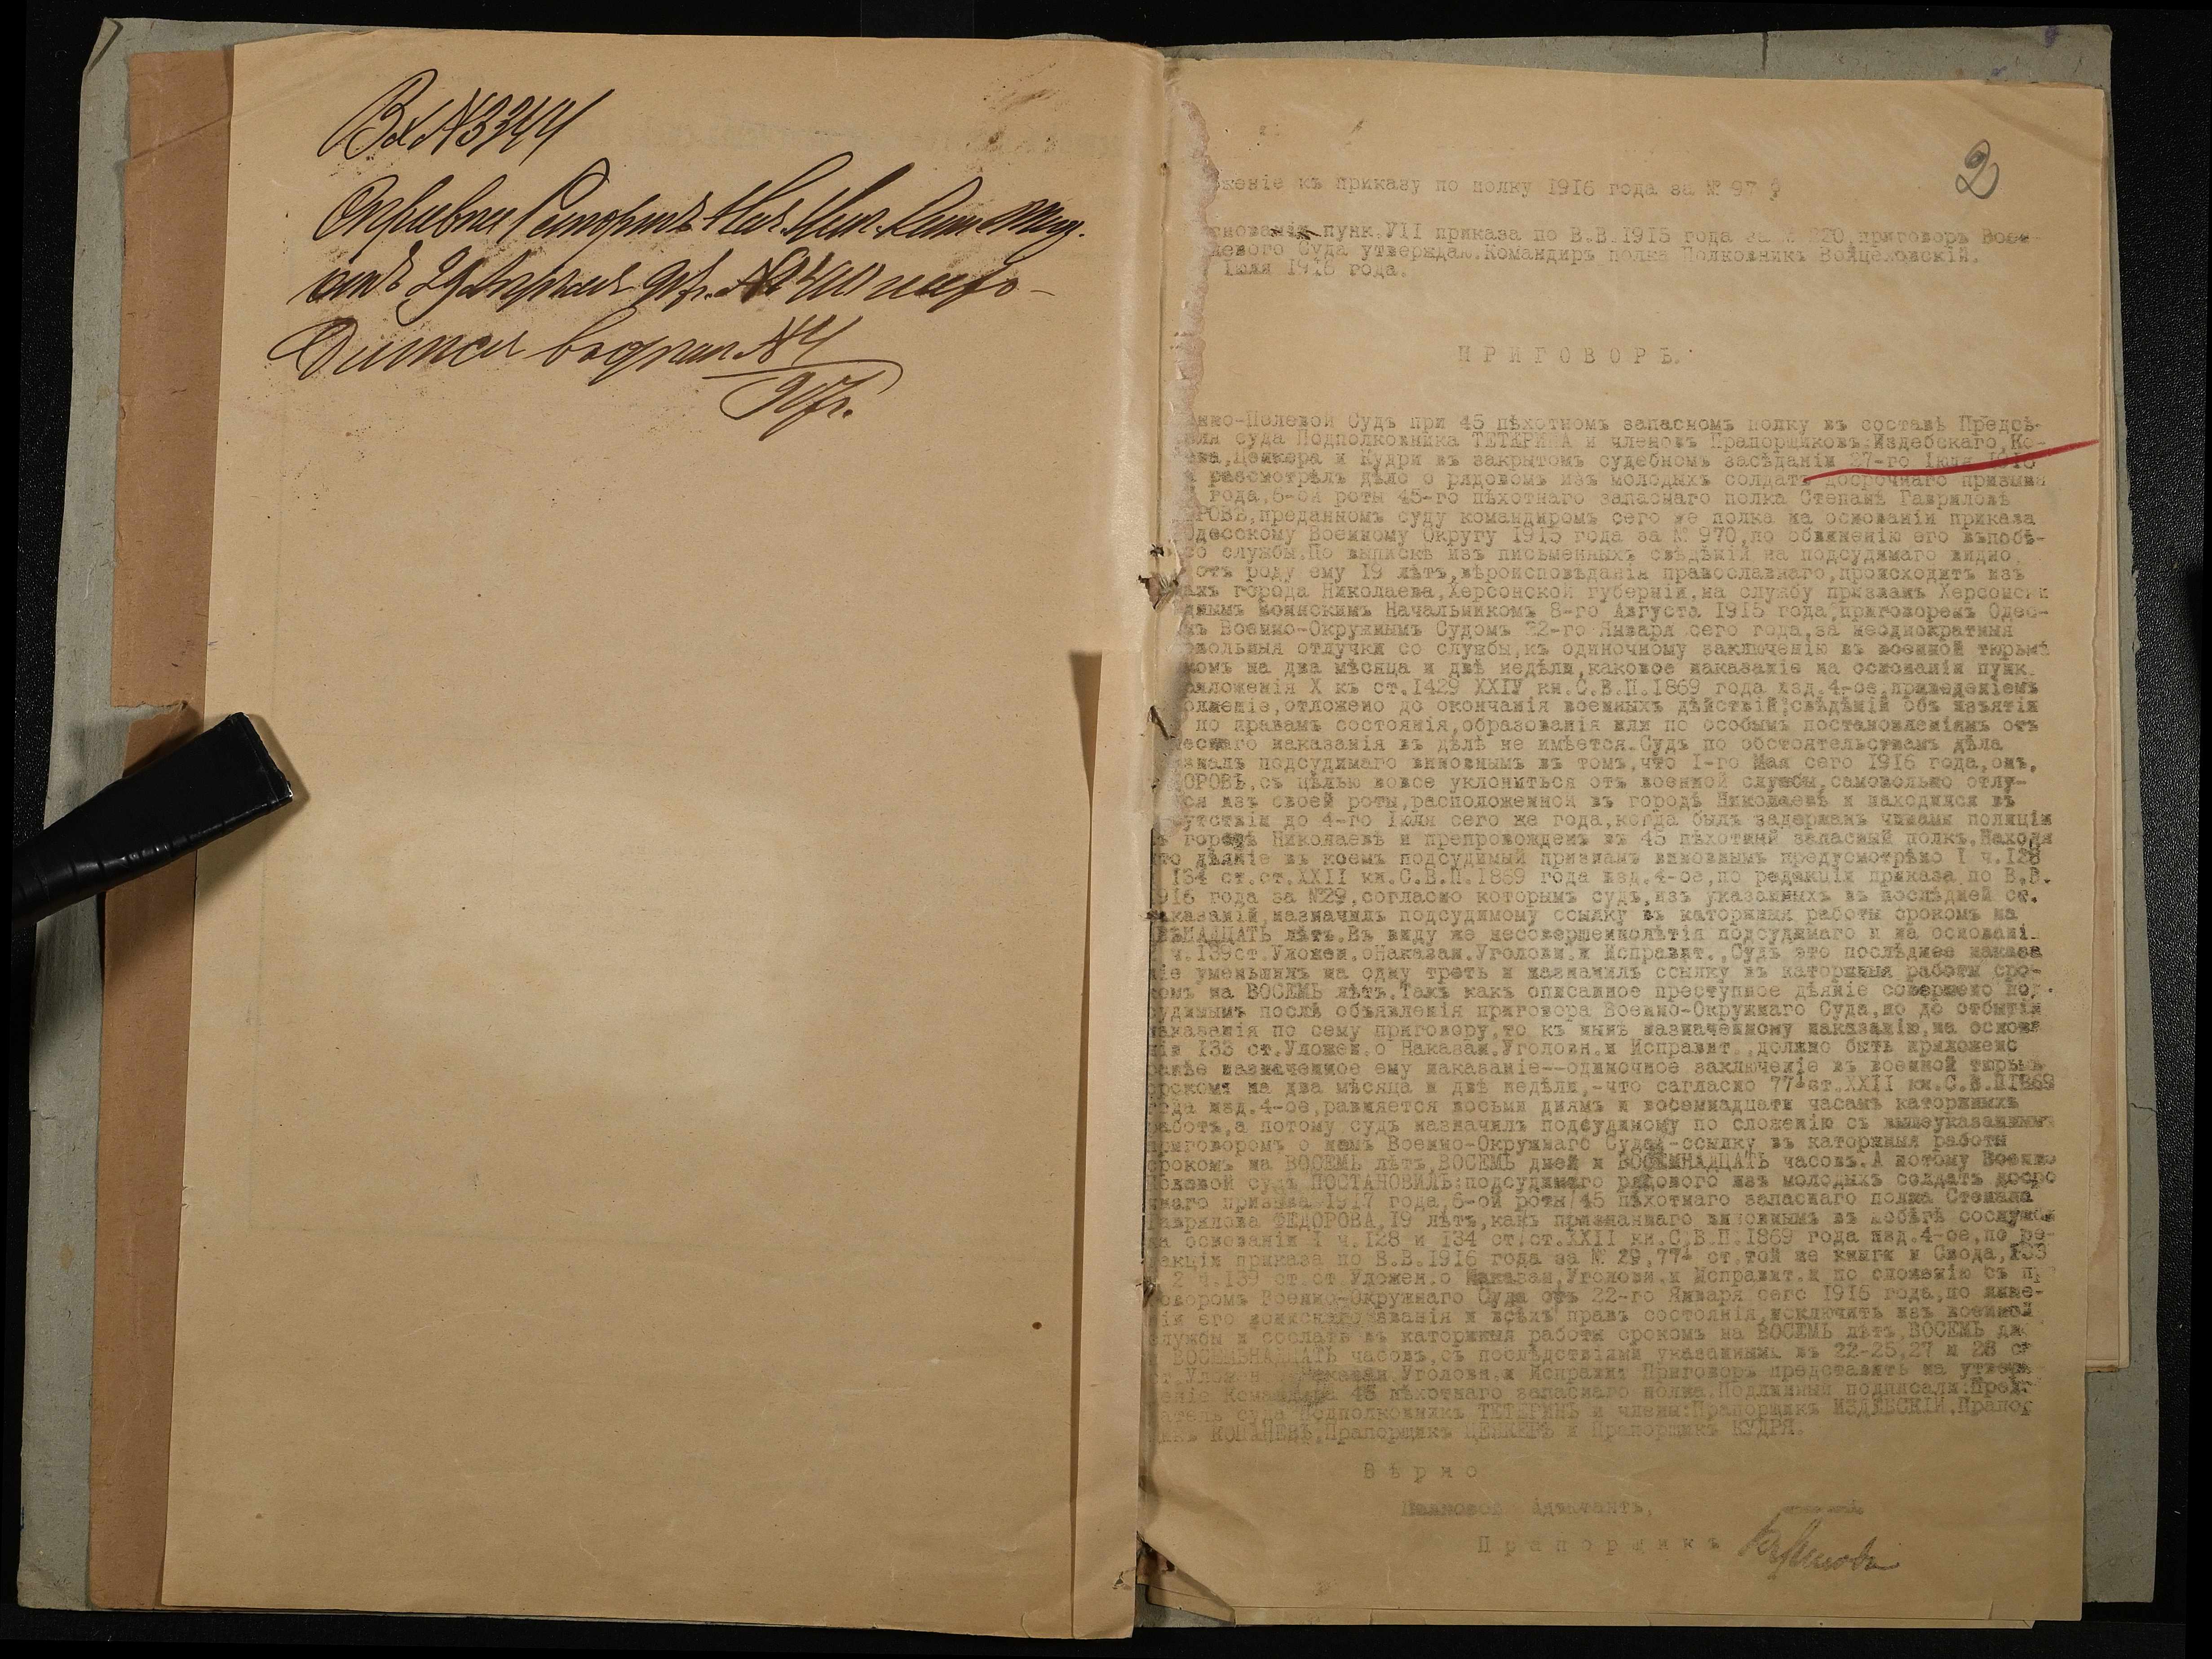 Вх №3344
от 29 Апреля 917г. № нахо-
дится в №4
917г.
2
жение къ приказу по полку 1916 года за № 97
пунк.VII приказа по В.В.1915 года за № 220,приговоръ Вое-
левого Суда утверждаю.Командиръ полка Полковникъ Войцеховскій.
Іюля 1916 года.
ПРИГОВОРЪ.
нно-Полевой Судъ при 45 пѣхотномъ запасномъ полку въ составѣ Предсѣ-
ля суда Подполковника ТЕТЕРИНА и членовъ Прапорщиковъ:Издебскаго,Ко-
ева,Ценкера и Кудри въ закрытомъ судебномъ засѣданіи 27-го Іюля 1916
разсмотрѣлъ дѣло о рядовомъ изъ молодыхъ солдатъ досрочнаго призыва
года,6-ой роты 45-го пѣхотнаго запаснаго полка Степанѣ Гавриловѣ
РОВѢ,преданномъ суду командиромъ сего же полка на основаніи приказа
Одесскому Военному Округу 1915 года за № 970,по обвиненію его въпобѣ-
со службы.По выпискѣ изъ письменныхъ свѣдѣній на подсудимаго видно,
отъ роду ему 19 лѣтъ,вѣроисповѣданія православнаго,происходитъ изъ
анъ города Николаева,Херсонской губерніи,на службу призванъ Херсонск
днымъ Воинскимъ Начальникомъ 8-го Августа 1915 года,приговоремъ Одес-
мъ Военно-Окружнымъ Судомъ 22-го Января сего года,за неоднократныя
вольныя отлучки со службы,къ одиночному заключенію въ военной тюрьмѣ
комъ на два мѣсяца и двѣ недѣли,каковое наказаніе на основаніи пунк.
иложенія X къ ст.1429 XXIV кн.С.В.П.1869 года изд.4-ое,приведеніемъ
олненіе,отложено до окончанія военныхъ дѣйствій;свѣдѣній объ изъятіи
по правамъ состоянія,образованія или по особымъ постановленіямъ отъ
ескаго наказанія въ дѣлѣ не имѣется.Судъ по обстоятельствамъ дѣла
зналъ подсудимаго виновнымъ въ томъ,что 1-го Мая сего 1916 года,онъ,
ОРОВЪ,съ цѣлью вовсе уклониться отъ военной службы,самовольно отлу-
ся изъ своей роты,расположенной въ городѣ Николаевѣ и находился въ
утствіи до 4-го Іюля сего же года,когда былъ задержанъ чинами полиціи
ъ городѣ Николаевѣ и препровожденъ въ 45 пѣхотный запасный полкъ.Находя
то дѣяніе въ коемъ подсудимый признанъ виновнымъ предусмотрѣно 1 ч.128
134 ст.ст.XXII кн.С.В.П.1869 года изд.4-ое,по редакціи приказа по В.В.
916 года за №29,согласно которымъ судъ,изъ указанныхъ въ послѣдней ст.
аказаній,назначилъ подсудимому ссылку въ каторжныя работы срокомъ на
ВѢНАДЦАТЬ лѣтъ.Въ виду же несовершеннолѣтія подсудимаго и на основані
ч.139ст.Уложен.оНаказан.Уголовн.и Исправит.,Судъ это послѣднее наказа
ніе уменьшилъ на одну треть и назначилъ ссылку въ каторжныя работы сро-
комъ на ВОСЕМЬ лѣтъ.Такъ какъ описанное преступное дѣяніе совершено под-
судимымъ послѣ объявленія приговора Военно-Окружнаго Суда,но до отбытія
наказанія по сему приговору,то къ нынѣ назначенному наказанію,на основа
ніи 133 ст.Уложен.о Наказан.Уголовн.и Исправит.,должно быть приложено
ранѣе назначенное ему наказаніе--одиночное заключеніе въ военной тюрьмѣ
срокомъ на два мѣсяца и двѣ недѣли,-что сагласно 77¹ст.XXII кн.С.В.П1869
года изд.4-ое,равняется восьми днямъ и восемнадцати часамъ каторжныхъ
работъ,а потому судъ назначилъ подсудимому по сложенію съ вышеуказаннымъ
приговоромъ о немъ Военно-Окружнаго Суда-ссылку въ каторжныя работы
срокомъ на ВОСЕМЬ лѣтъ,ВОСЕМЬ дней и ВОСЕМНАДЦАТЬ часовъ.А потому Военно
Полевой судъ ПОСТАНОВИЛЪ:подсудимаго рядового изъ молодыхъ солдатъ досро
чнаго призыва 1917 года,6-ой роты 45 пѣхотнаго запаснаго полка Степана
Гаврилова ФЕДОРОВА,19 лѣтъ,какъ признаннаго виновнымъ въ побѣгѣ сослужбы
на основаніи 1 ч.128 и 134 ст.ст.XXII кн.С.В.П.1869 года изд.4-ое,по ре-
акціи приказа по В.В.1916 года за № 29,77¹ ст.той же книги и Свода,133
2 ч.139 ст.ст.Уложен.о Наказан.Уголовн.и Исправит.и по сложенію съ пр
говоромъ Военно-Окружнаго Суда отъ 22-го Января сего 1916 года,по лише-
ніи его воинскаго званія и всѣхъ правъ состоянія,исключить изъ военной
службы и сослать въ каторжныя работы срокомъ на ВОСЕМЬ лѣтъ,ВОСЕМЬ дн
ВОСЕМЬНАДЦАТЬ часовъ,съ послѣдствіями указанными въ 22-25,27 и 28 ст
ст.Уложен. Наказан.Уголовн.и Исправит Приговоръ представить на утвер
еніе Командира 45 пѣхотнаго запаснаго полка.Подлинный подписали:Предс
атель суда Подполковникъ ТЕТЕРИНЪ и члены:Прапорщикъ ИЗДЕБСКІЙ,Прапор
икъ КОПАНЕВЪ,Прапорщикъ ЦЕНКЕРЪ и Прапорщикъ КУДРЯ.
Вѣрно
Полковой Адъютантъ,
Прапорщикъ